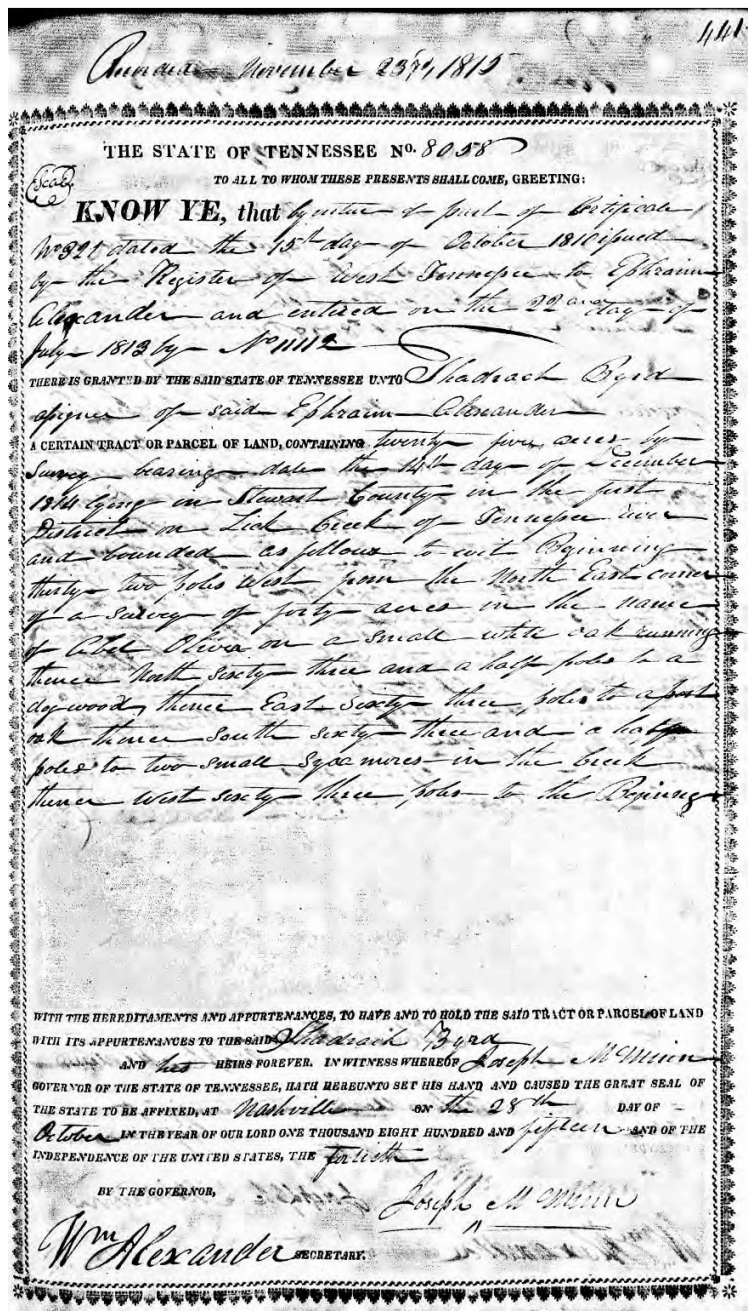 441
Recorded November 23rd, 1815
THE STATE OF TENNESSEE No. 8058
Seal
TO ALL TO WHOM THESE PRESENTS SHALL COME, GREETING:
KNOW YE, that by virtue of part of Certificate
No 321 dated the 15th day of October 1810 issued
by the Register of West Tennessee to Ephraim
Alexander and entered on the 22 day of
July 1813 by No 11112
THERE IS GRANTED BY THE SAID STATE OF TENNESSEE UNTO Shadrach Byrd
assignee of said Ephraim Alexander
A CERTAIN TRACT OR PARCEL OF LAND, CONTAINING twenty five acres by
Survey bearing date the 14th day of December
1814 lying in Stewart County in the first
District on Lick Creek of Tennessee river
and bounded as follows to wit Beginning
thirty two poles West from the North East corner
of a survey of forty acres in the name
of Abel Oliver on a small white oak running
thence North sixty three and a half poles to a
dogwood, thence East sixty three poles to a post
oak thence South sixty three and a half
poles to two small Sycamores in the Creek
thence West sixty three poles to the Begining
WITH THE HEREDITAMENTS AND APPURTENANCES, TO HAVE AND TO HOLD THE SAID TRACT OR PARCEL OF LAND
WITH ITS APPURTENANCES TO THE SAID Shadrach Byrd
AND his HEIRS FOREVER. IN WITNESS WHEREOF Joseph McMinn
GOVERNOR OF THE STATE OF TENNESSEE, HATH HEREUNTO SET HIS HAND, AND CAUSED THE GREAT SEAL OF
THE STATE TO BE AFFIXED, AT Nashville ON the 28th DAY OF
October IN THE YEAR OF OUR LORD ONE THOUSAND EIGHT HUNDRED AND fifteen AND OF THE
INDEPENDENCE OF THE UNITED STATES, THE fortieth
BY THE GOVERNOR,
Joseph McMinn
Wm Alexander SECRETARY.